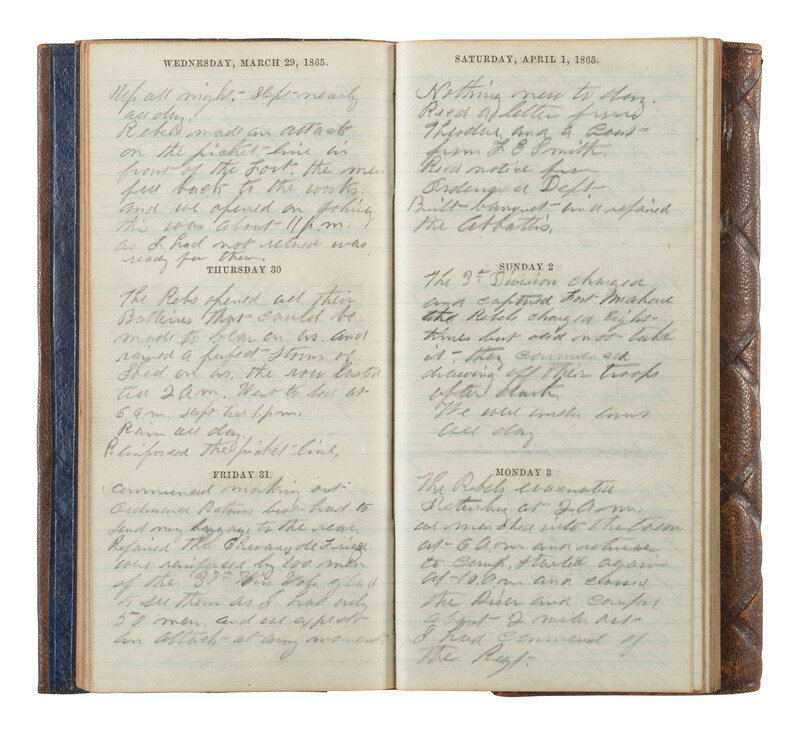 WEDNESDAY, MARCH 29, 1865.
Up all night. Slept nearly
all day.
Rebels made an attack
on the picket line in
front of the Fort. the men
fell back to the works.
and we opened on
this was about 11 p.m.
as I had not retired was
ready for them.
THURSDAY 30
The Rebs opened all their
Batteries that could be
made to bear on us. and
rained a perfect Storm of
on us. the row lasted
till 2 A.m. Went to bed at
6 a.m. slept till p.m.
Rain all day.
Reinforced the picket line.
FRIDAY 31
Commenced making out
Ordnance Returns but had to
send my baggage to the rear.
Repaired the Chevaux de Frieze
were reinforced by 100 men
of the 37th Wis Vols. glad
to see them as I had only
50 men. and we expect
an attack at any moment.
SATURDAY, APRIL 1, 1865.
Nothing new to day.
Recd a letter from
Theodore and a
from F. E. Smith.
Recd notice from
Ordnance Dept
Built banquet and repaired
the Abbattis.
SUNDAY 2
The 3d Division charged
and captured Fort Mahone
the Rebels charged eight
times but did not take
it - they commenced
drawing off their troops
after dark.
We were under arms
all day
MONDAY 3
The Rebels evacuated
Petersburg at 2 a.m.
we marched into the town
at 6 a m and returned
to camp, started again
at 10 a m and crossed
the River and camped
about 2 miles out
I had command of
the Regt.